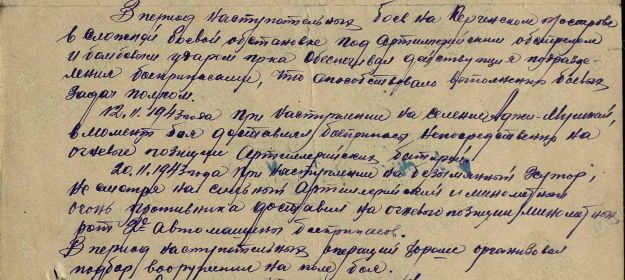 В период наступательных боев на Керченском полуострове
в сложной боевой обстановке под артиллерийским обстрелом
и бомбовым ударом пр-ка обеспечивал действующие подразде-
ления боеприпасами, что способствовало выполнению боевых
задач полком.
12.11.1943 года при наступлении на селение Аджи-Мушкай,
в момент боя доставлял боеприпасы непосредственно на
огневые позиции артиллерийских батарей.
20.11.1943 года при наступлении на безымянный хутор,
не смотря на сильный артиллерийский и минометный
огонь противника доставил на огневые позиции минометных
рот автомашины боеприпасов.
В период наступательных операций хорошо организовал
подбор вооружения на поле боя.